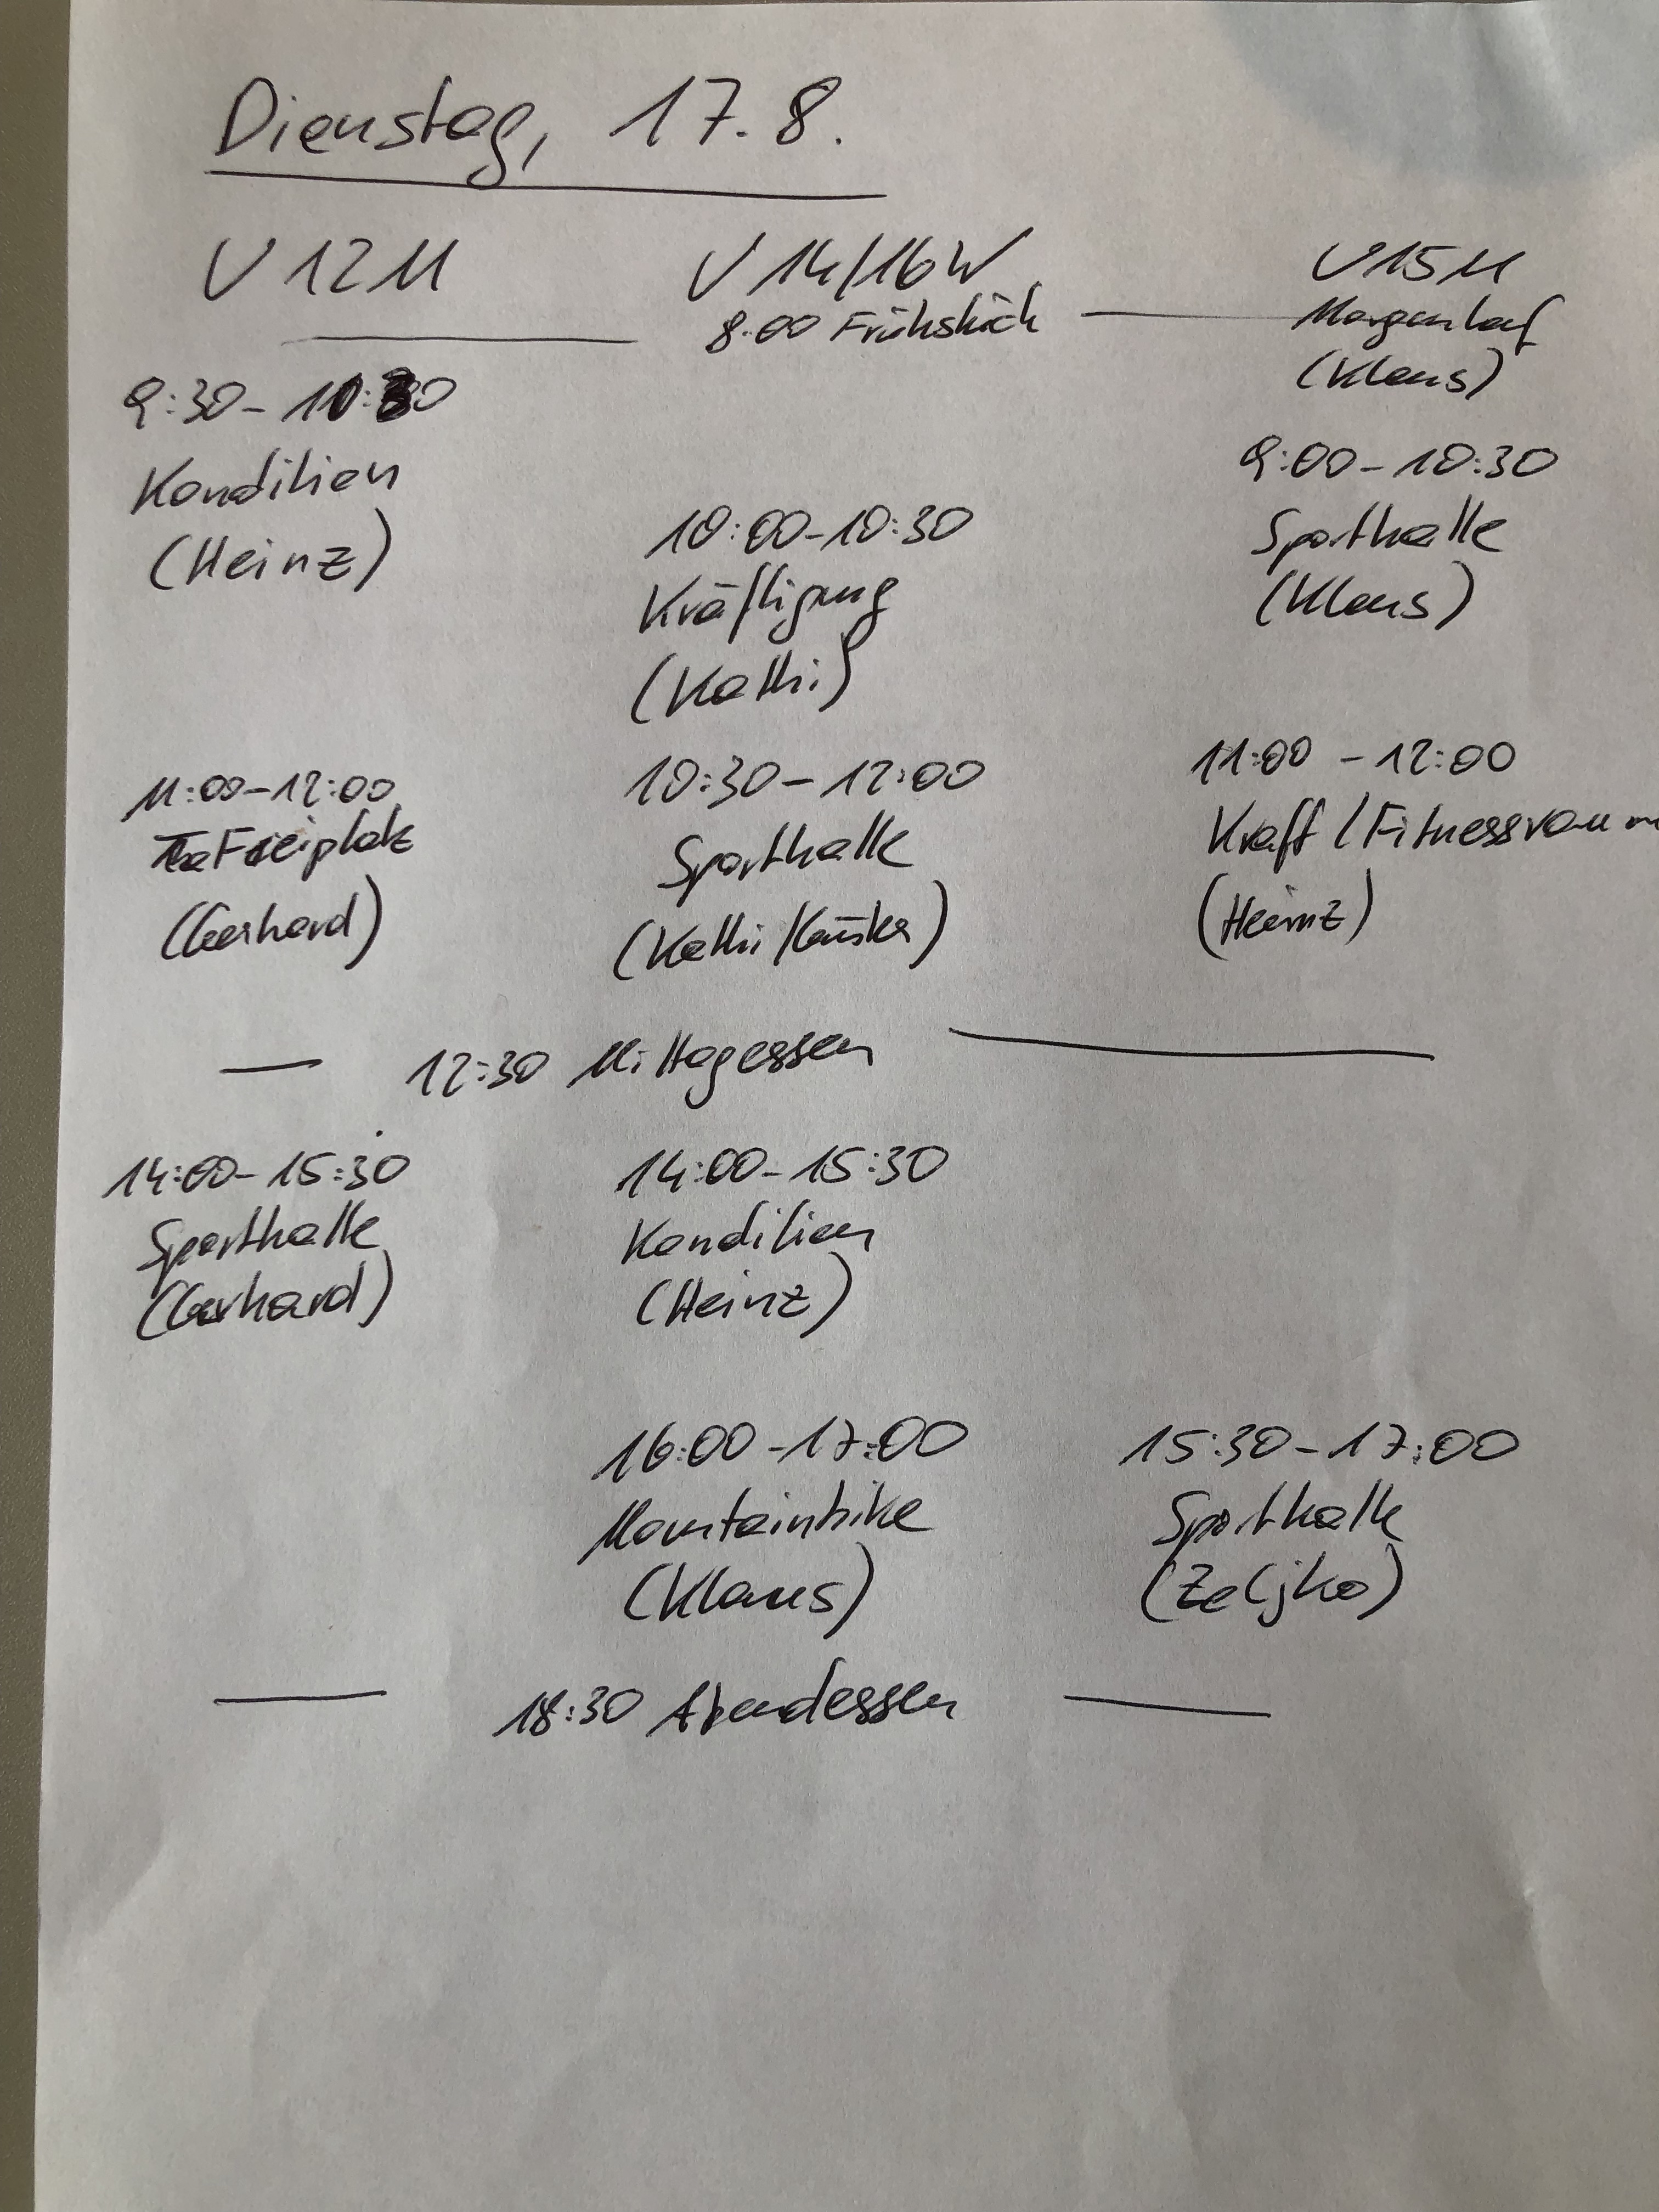 Dienstag, 17.8.
U12M
U14/16W
U15M
8.00 Frühstück
Morgenlauf
(Klaus)
9:30-10:30
Kondition
(Heinz)
9:00-10:30
Sporthalle
(Klaus)
10:00-10:30
Kräftigung
(Kathi)
11:00-12:00
Freiplatz
(Gerhard)
10:30-12:00
Sporthalle
(Kathi/
11:00-12:00
Kraft/Fitnessraum
(Heinz)
12:30 Mittagessen
14:00-15:30
Sporthalle
(Gerhard)
14:00-15:30
Kondition
(Heinz)
16:00-17:00
Mountainbike
(Klaus)
15:30-17:00
Sporthalle
(Zeljko)
18:30 Abendessen